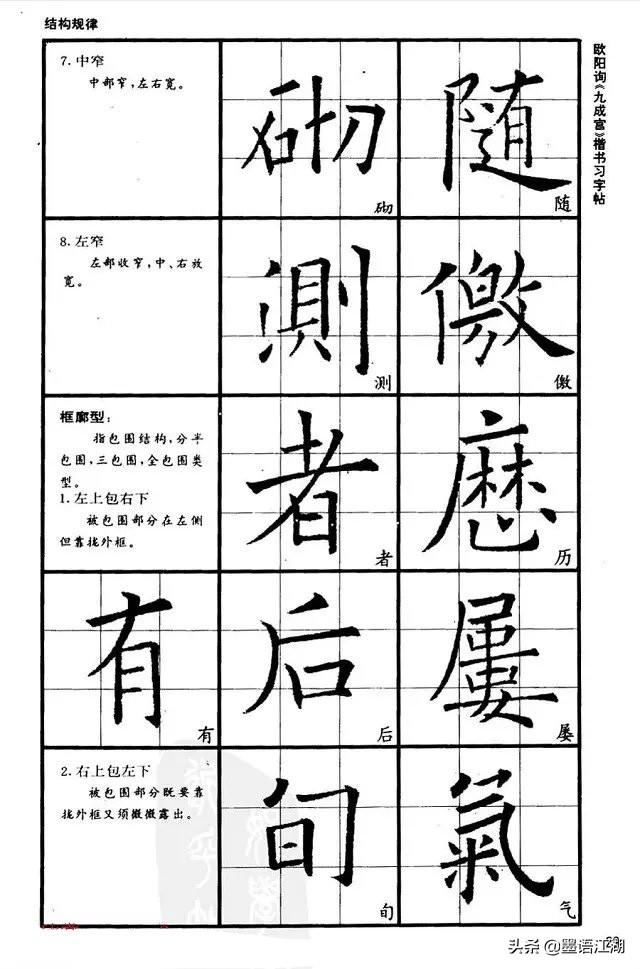 结构规律
欧阳询《九成宫》楷书习字帖
7. 中窄
中部窄，左右宽。
砌
砌
随
随
8. 左窄
左部收窄，中、右放
宽。
測
测
儌
儌
框廓型：
指包围结构，分半
包围，三包围，全包围类
型。
1. 左上包右下
被包围部分在左侧
但靠拢外框。
者
者
历
有
有
后
后
屢
屡
2. 右上包左下
被包围部分既要靠
拢外框又须微微露出。
旬
旬
氣
气
头条 @墨语江湖